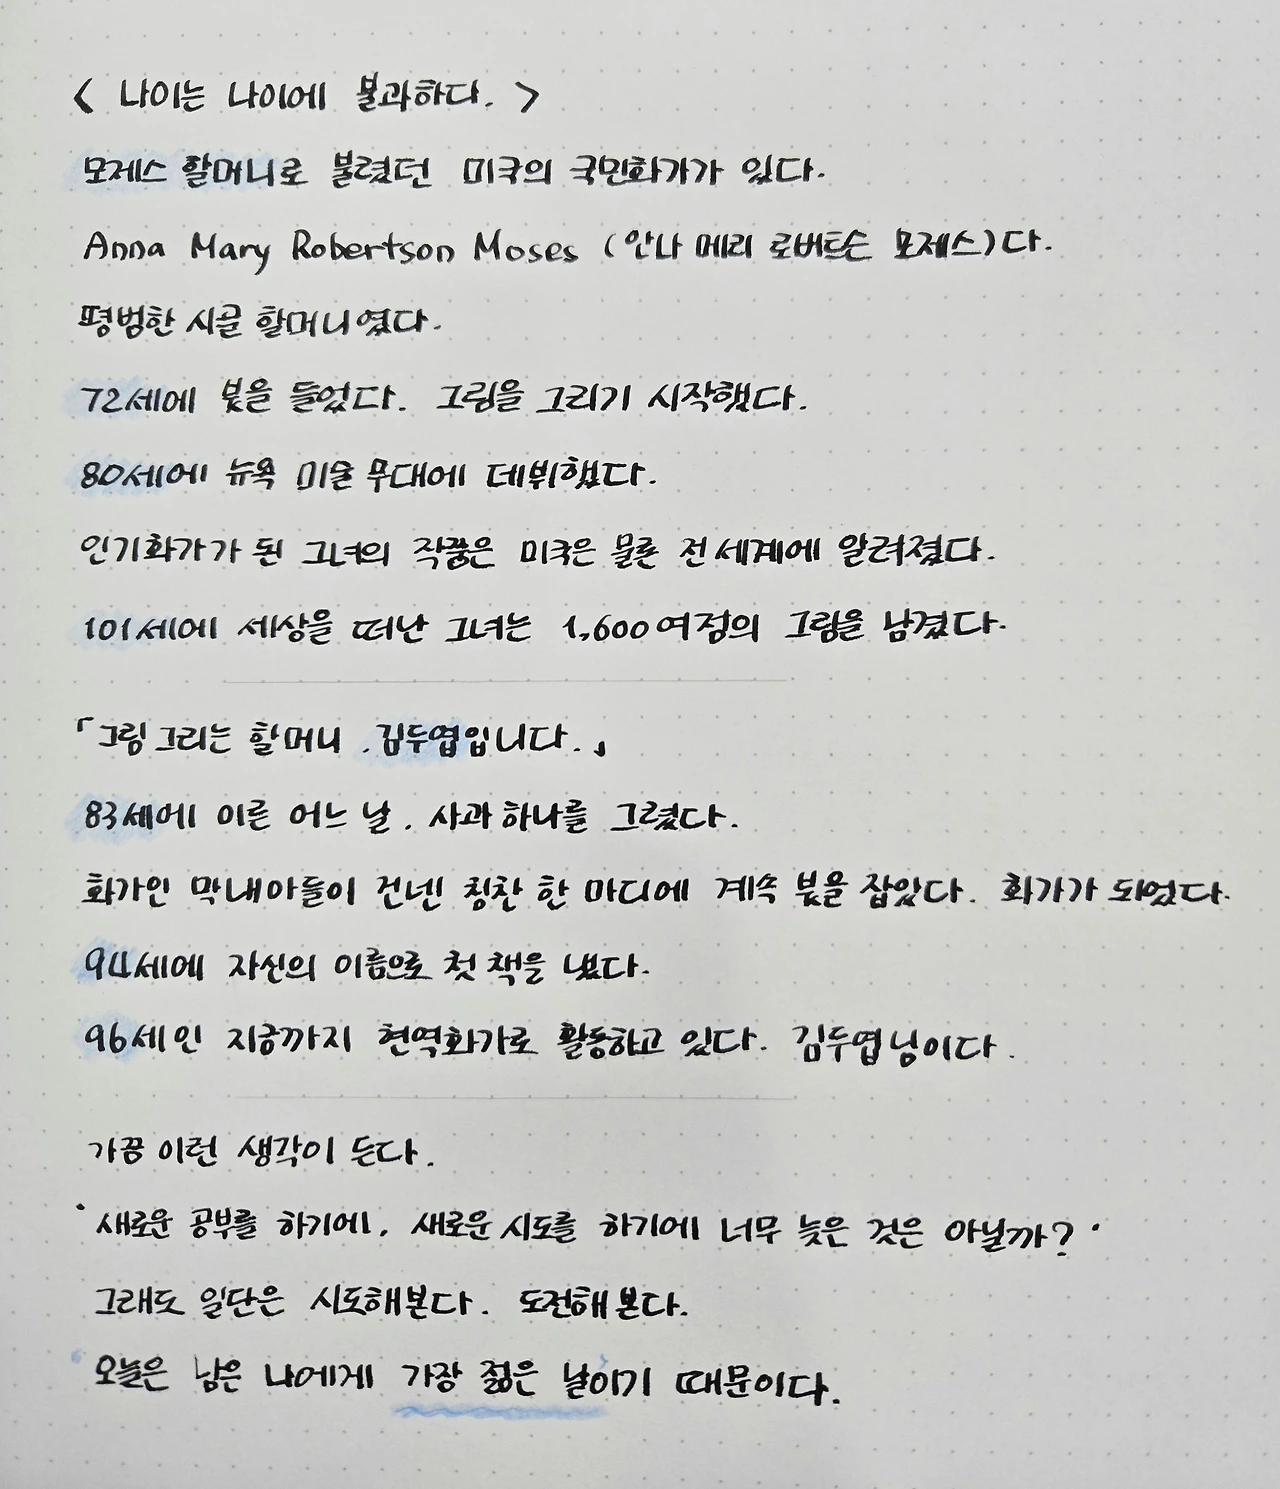 < 나이는 나이에 불과하다. >
모제스 할머니로 불렸던 미국의 국민화가가 있다.
Anna Mary Robertson Moses (안나 메리 로버트슨 모제스)다.
평범한 시골 할머니였다.
72세에 붓을 들었다. 그림을 그리기 시작했다.
80세에 뉴욕 미술 무대에 데뷔했다.
인기화가가 된 그녀의 작품은 미국은 물론 전세계에 알려졌다.
101세에 세상을 떠난 그녀는 1,600여점의 그림을 남겼다.
「그림 그리는 할머니, 김두엽입니다.」
83세에 이른 어느 날, 사과 하나를 그렸다.
화가인 막내아들이 건넨 칭찬 한 마디에 계속 붓을 잡았다. 화가가 되었다.
94세에 자신의 이름으로 첫 책을 냈다.
96세인 지금까지 현역화가로 활동하고 있다. 김두엽님이다.
가끔 이런 생각이 든다.
'새로운 공부를 하기에, 새로운 시도를 하기에 너무 늦은 것은 아닐까?'
그래도 일단은 시도해본다. 도전해본다.
'오늘은 남은 나에게 가장 젊은 날'이기 때문이다.